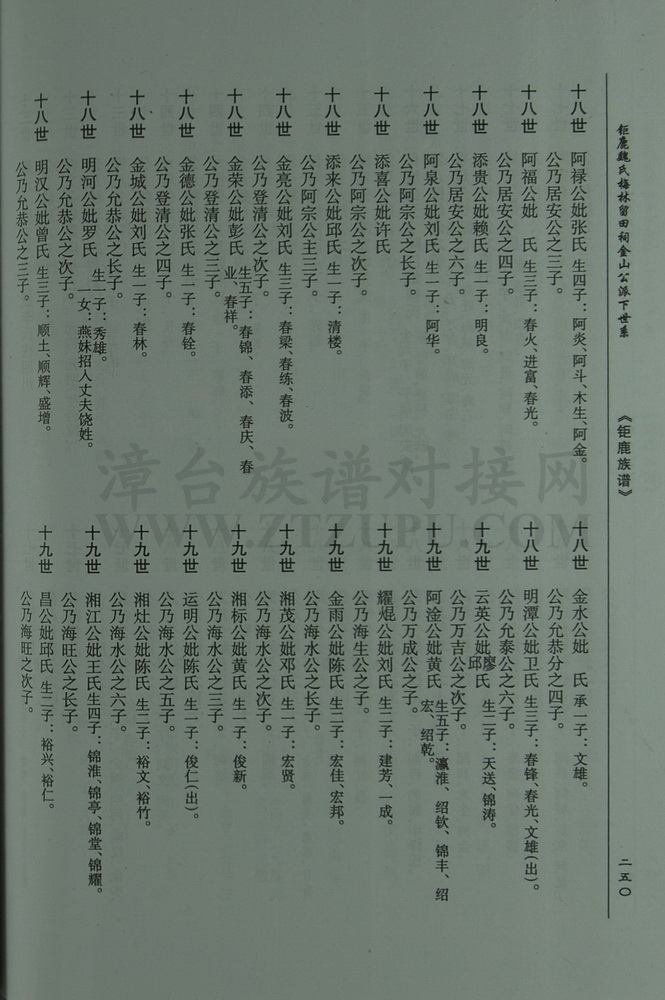 钜鹿魏氏梅林留田祠金山公派下世系
《钜鹿族谱》
二五〇
十八世 阿禄公妣张氏 生四子：阿炎、阿斗、木生、阿金。
公乃居安公之三子。
十八世 阿福公妣 氏 生三子：春火、进富、春光。
公乃居安公之四子。
十八世 添贵公妣赖氏 生一子：明良。
公乃居安公之六子。
十八世 阿泉公妣刘氏 生一子：阿华。
公乃阿宗公之长子。
十八世 添喜公妣许氏
公乃阿宗公之次子。
十八世 添来公妣邱氏 生一子：清楼。
公乃阿宗公主三子。
十八世 金亮公妣刘氏 生三子：春梁、春练、春波。
公乃登清公之次子。
十八世 金荣公妣彭氏 生五子：春锦、春添、春庆、春
业、春祥。
公乃登清公之三子。
十八世 金德公妣张氏 生一子：春铨。
公乃登清公之四子。
十八世 金城公妣刘氏 生一子：春林。
公乃允恭公之长子。
十八世 明河公妣罗氏 生一子：秀雄。
一女：燕妹招入丈夫饶姓。
公乃允恭公之次子。
十八世 明汉公妣曾氏 生三子：顺土、顺辉、盛增。
公乃允恭公之三子。
十八世 金水公妣 氏 承一子：文雄。
公乃允恭分之四子。
十八世 明潭公妣卫氏 生三子：春锋、春光、文雄（出）。
公乃允泰公之六子。
十九世 云英公妣廖邱氏 生二子：天送、锦涛。
公乃万吉公之次子。
十九世 阿淦公妣黄氏 生五子：瀛淮、绍钦、锦丰、绍
宏、绍乾。
公乃万成公之子。
十九世 耀焜公妣刘氏 生二子：建芳、一成。
公乃海生公之子。
十九世 金雨公妣陈氏 生二子：宏佳、宏邦。
公乃海水公之长子。
十九世 湘茂公妣邓氏 生一子：宏贤。
公乃海水公之次子。
十九世 湘标公妣黄氏 生一子：俊新。
公乃海水公之三子。
十九世 运明公妣陈氏 生一子：俊仁（出）。
公乃海水公之五子。
十九世 湘灶公妣陈氏 生二子：裕文、裕竹。
公乃海水公之六子。
十九世 湘江公妣王氏生四子：锦淮、锦亭、锦堂、锦耀。
公乃海旺公之长子。
十九世 昌公妣邱氏 生二子：裕兴、裕仁。
公乃海旺之次子。
漳台族谱对接网
WWW.ZTZUPU.COM